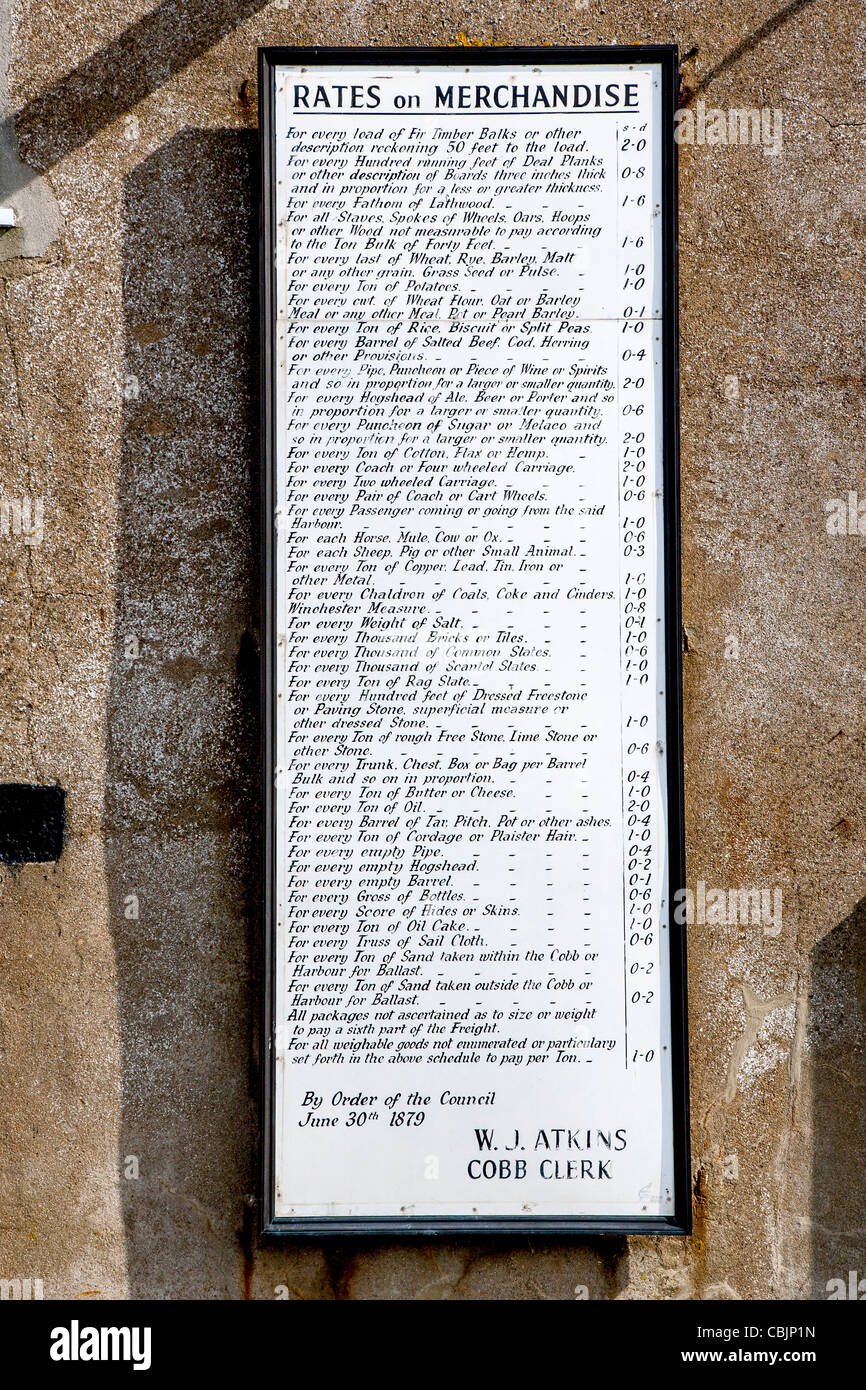 RATES on MERCHANDISE
s - d
For every load of Fir Timber Balks or other
description reckoning 50 feet to the load. 2-0
For every Hundred running feet of Deal Planks
or other description of Boards three inches thick 0-8
and in proportion for a less or greater thickness.
For every Fathom of Lathwood. - - - 1-6
For all Staves, Spokes of Wheels, Oars, Hoops
or other Wood not measurable to pay according
to the Ton Bulk of Forty Feet. - - - 1-6
For every last of Wheat, Rye, Barley, Malt
or any other grain, Grass Seed or Pulse. - 1-0
For every Ton of Potatoes. - - - - 1-0
For every cwt. of Wheat Flour, Oat or Barley
Meal or any other Meal, Pot or Pearl Barley. 0-1
For every Ton of Rice, Biscuit or Split Peas. 1-0
For every Barrel of Salted Beef, Cod, Herring
or other Provisions. - - - - - 0-4
For every Pipe, Puncheon or Piece of Wine or Spirits
and so in proportion for a larger or smaller quantity. 2-0
For every Hogshead of Ale, Beer or Porter and so
in proportion for a larger or smaller quantity. 0-6
For every Puncheon of Sugar or Melaco and
so in proportion for a larger or smaller quantity. 2-0
For every Ton of Cotton, Flax or Hemp. - 1-0
For every Coach or Four wheeled Carriage. 2-0
For every Two wheeled Carriage. - - - 1-0
For every Pair of Coach or Cart Wheels. - 0-6
For every Passenger coming or going from the said
Harbour. - - - - - - 1-0
For each Horse, Mule, Cow or Ox. - - - 0-6
For each Sheep, Pig or other Small Animal. - 0-3
For every Ton of Copper, Lead, Tin, Iron or -
other Metal. - - - - - - 1-0
For every Chaldron of Coals, Coke and Cinders. 1-0
Winchester Measure. - - - - - 0-8
For every Weight of Salt. - - - - 0-1
For every Thousand Bricks or Tiles. - - 1-0
For every Thousand of Common Slates. - 0-6
For every Thousand of Scantel Slates. - - 1-0
For every Ton of Rag Slate. - - - - 1-0
For every Hundred feet of Dressed Freestone
or Paving Stone, superficial measure or
other dressed Stone. - - - - - 1-0
For every Ton of rough Free Stone, Lime Stone or
other Stone. - - - - - - 0-6
For every Trunk, Chest, Box or Bag per Barrel
Bulk and so on in proportion. - - - 0-4
For every Ton of Butter or Cheese. - - 1-0
For every Ton of Oil. - - - - - 2-0
For every Barrel of Tar, Pitch, Pot or other ashes. 0-4
For every Ton of Cordage or Plaister Hair. - 1-0
For every empty Pipe. - - - - 0-4
For every empty Hogshead. - - - - 0-2
For every empty Barrel. - - - - 0-1
For every Gross of Bottles. - - - - 0-6
For every Score of Hides or Skins. - - 1-0
For every Ton of Oil Cake. - - - - 1-0
For every Truss of Sail Cloth. - - - 0-6
For every Ton of Sand taken within the Cobb or
Harbour for Ballast. - - - - - 0-2
For every Ton of Sand taken outside the Cobb or
Harbour for Ballast. - - - - - 0-2
All packages not ascertained as to size or weight
to pay a sixth part of the Freight.
For all weighable goods not enumerated or particulary
set forth in the above schedule to pay per Ton. - 1-0
By Order of the Council
June 30th 1879
W. J. ATKINS
COBB CLERK
alamy
Image ID: CBJP1N
www.alamy.com